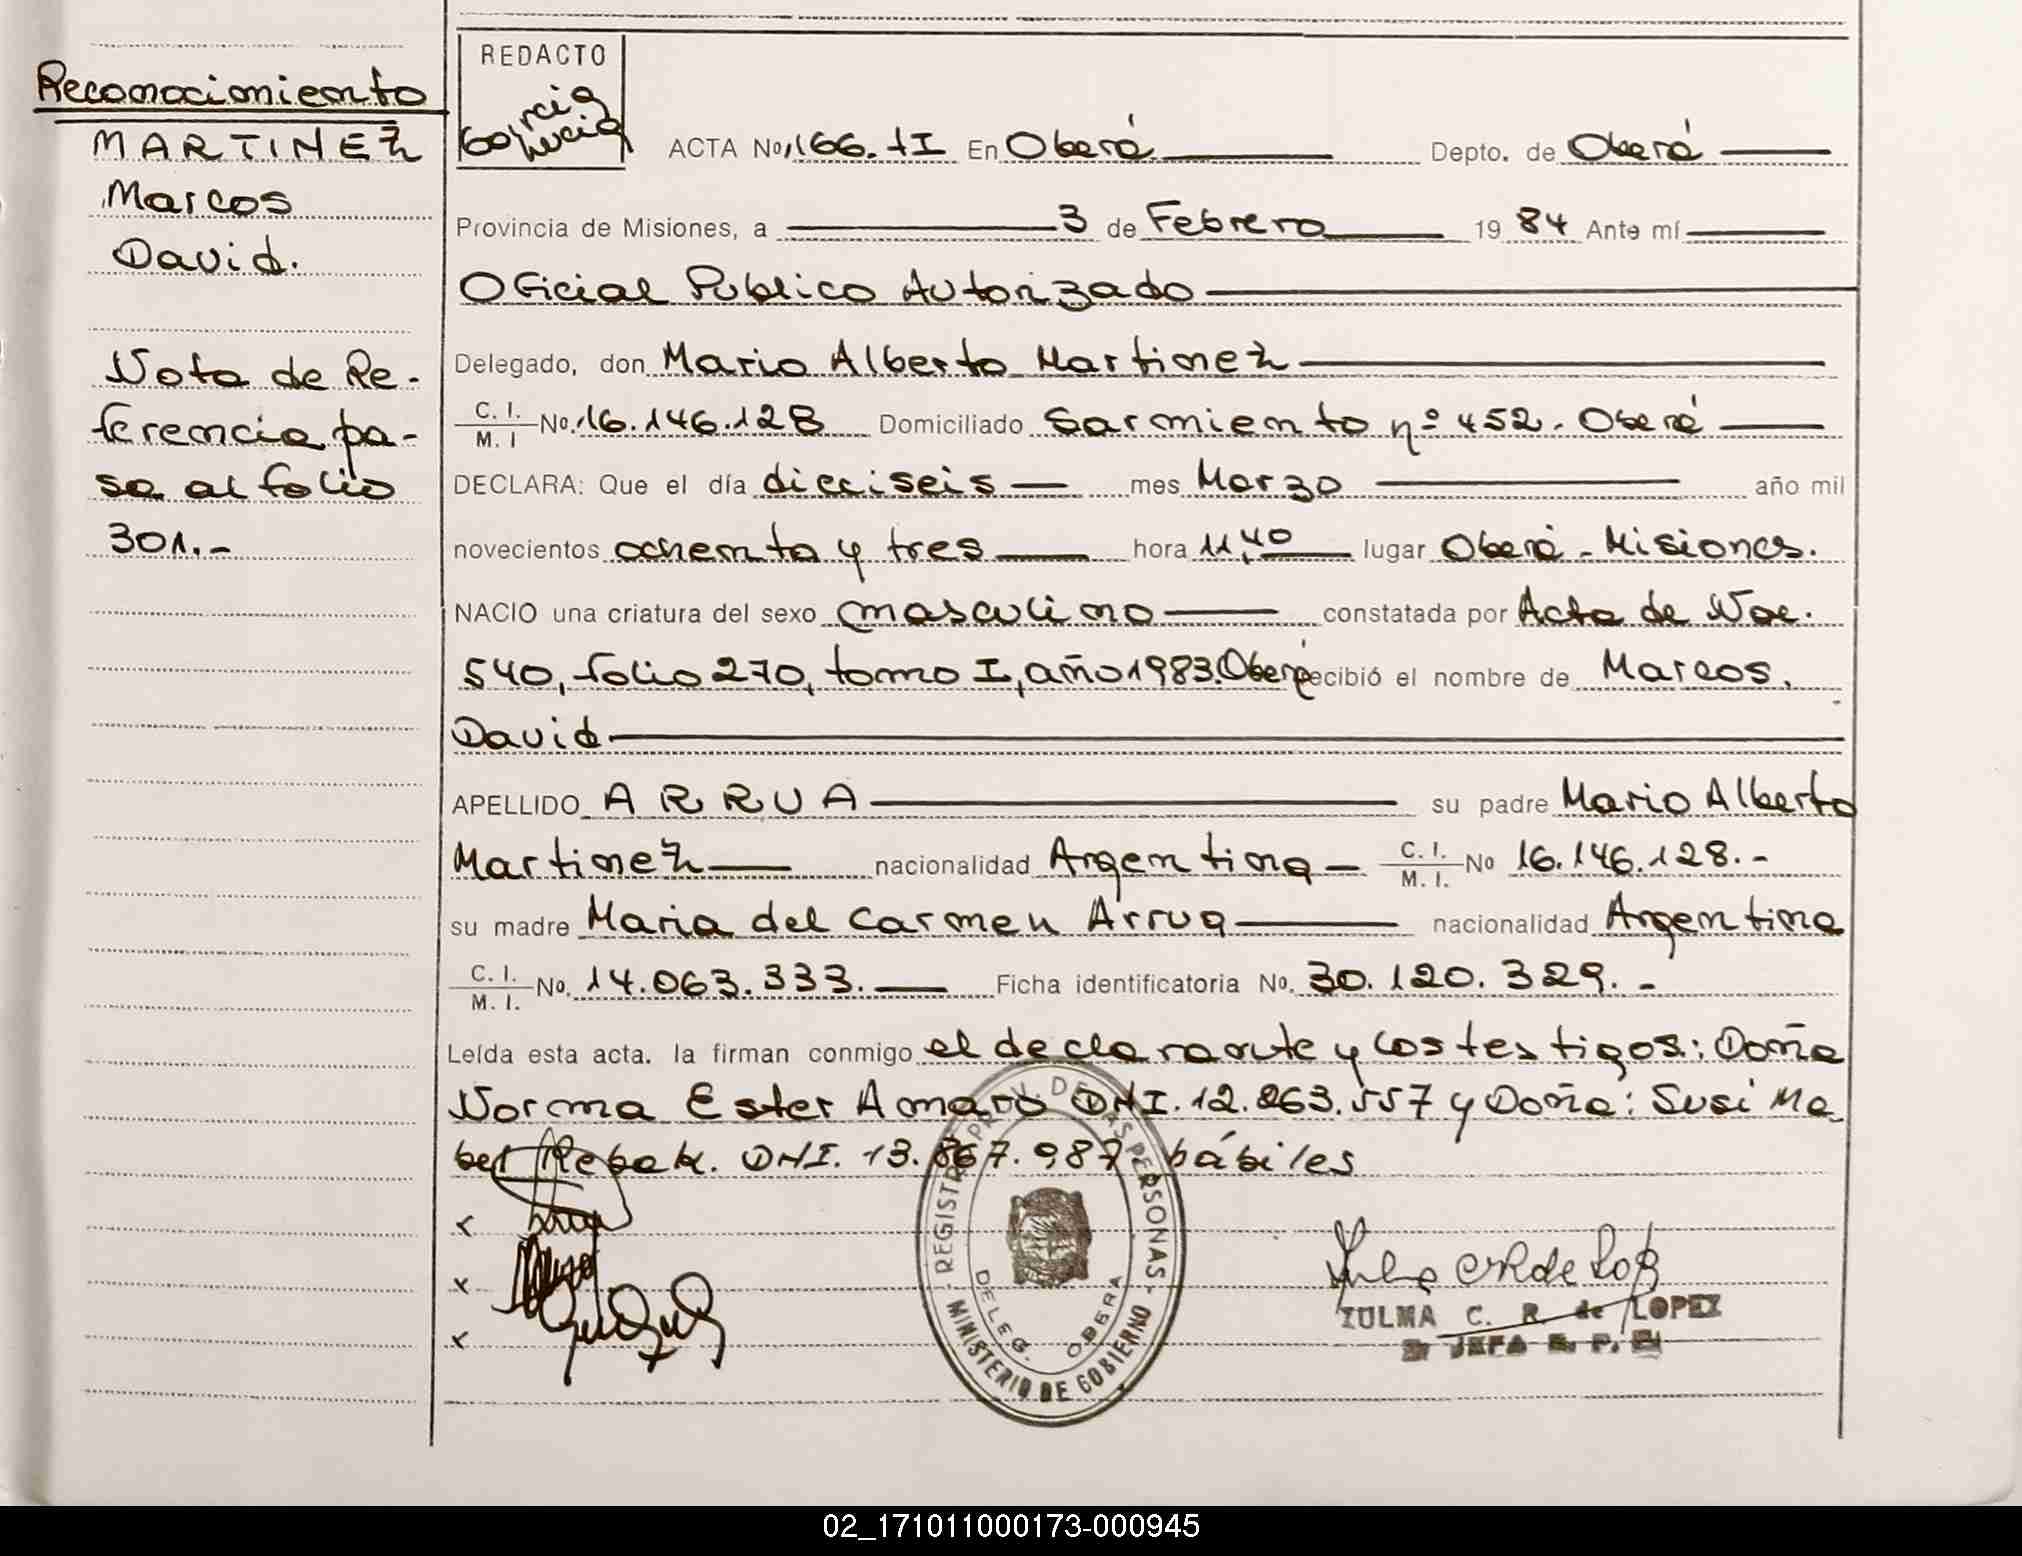 Reconocimiento
MARTINEZ
Marcos
David.
Nota de Re-
ferencia pa-
sa al folio
301.-
REDACTO
ACTA No 166. tI En Oberá Depto. de Oberá
Provincia de Misiones, a 3 de Febrero 1984 Ante mí
Oficial Publico Autorizado
Delegado, don Mario Alberto Martinez
C. I. / M. I No. 16.146.128 Domiciliado Sarmiento nº 452. Oberá
DECLARA: Que el día dieciseis mes Marzo año mil
novecientos ochenta y tres hora 11,40 lugar Oberá - Misiones.
NACIO una criatura del sexo masculino constatada por Acta de Nac.
540, folio 270, tomo I, año 1983. Oberá recibió el nombre de Marcos
David
APELLIDO ARRUA su padre Mario Alberto
Martinez nacionalidad Argentina C. I. / M. I. No 16.146.128.-
su madre Maria del Carmen Arrua nacionalidad Argentina
C. I. / M. I. No. 14.063.333. Ficha identificatoria No. 30.120.329.-
Leída esta acta. la firman conmigo el declarante y los testigos: Doña
Norma Ester Amaro DNI. 12.863.557 y Doña: Susi Ma-
bel Rebak. DNI. 13.867.987 hábiles
x
x
x
REGISTRO PROV. DE LAS PERSONAS
DELEG. OBERA
MINISTERIO DE GOBIERNO
ZULMA C. R. de LOPEZ
JEFA
02_171011000173-000945